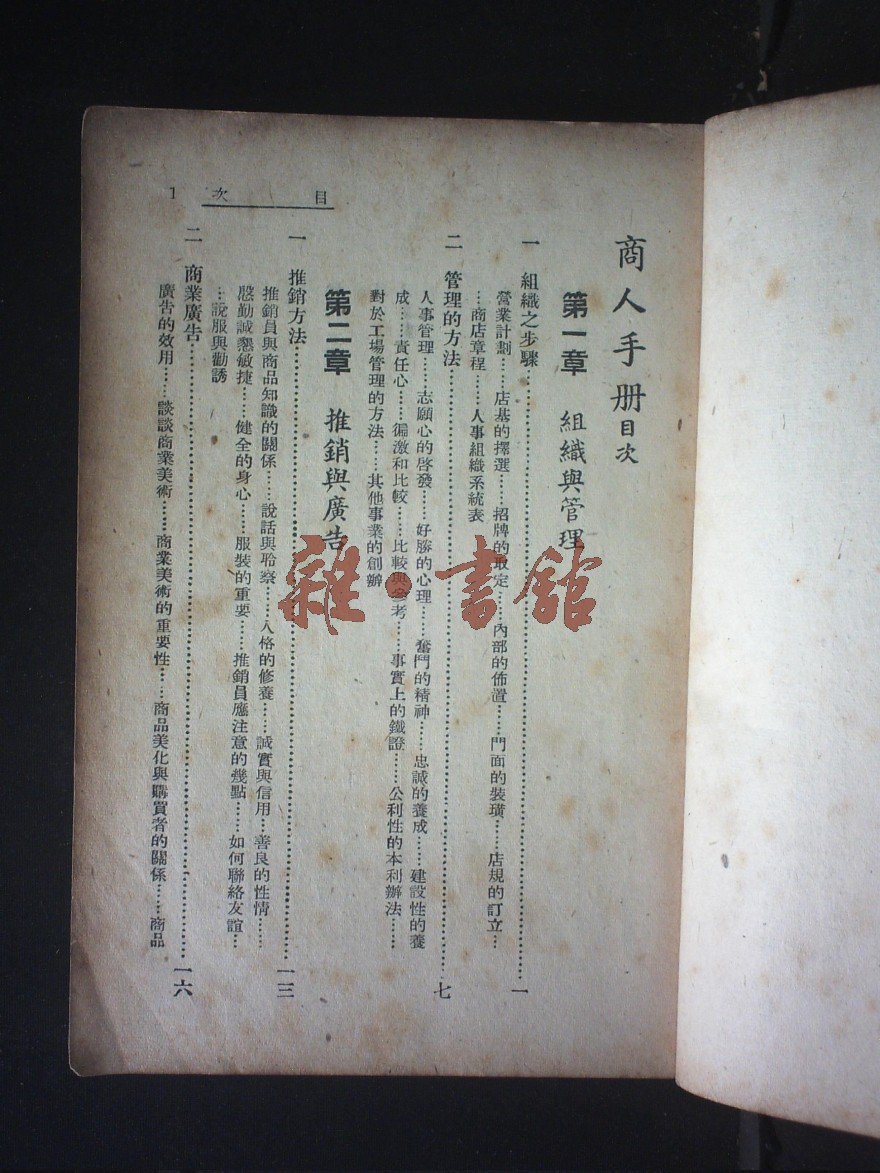 商人手册目次
第一章 組織與管理
一 組織之步驟……一
營業計劃……店基的擇選……招牌的取定……內部的佈置……門面的裝璜……店規的訂立…
…商店章程……人事組織系統表
二 管理的方法……七
人事管理……志願心的啓發……好勝的心理……奮鬥的精神……忠誠的養成……建設性的養
成……責任心……徧激和比較……比較與參考……事實上的鐵證……公利性的本利辦法……
對於工場管理的方法……其他事業的創辦
第二章 推銷與廣告
一 推銷方法……一三
推銷員與商品知識的關係……說話與聆察……人格的修養……誠實與信用…善良的性情……
慇勤誠懇敏捷……健全的身心……服裝的重要……推銷員應注意的幾點……如何聯絡友誼…
…說服與勸誘
二 商業廣告……一六
廣告的效用……談談商業美術……商業美術的重要性……商品美化與購買者的關係……商品
目次 1
雜·書館